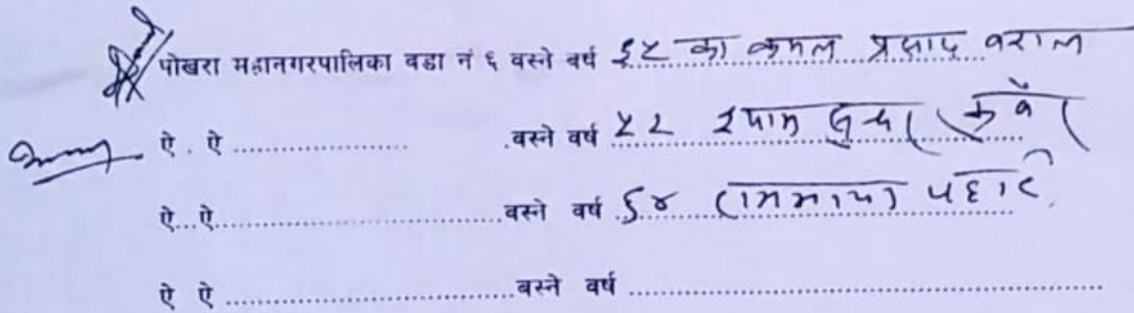 पोखरा महानगरपालिका वडा नं ६ वस्ने वर्ष ६५ का कमल प्रसाद बराल
ऐ . ऐ .................. .वस्ने वर्ष ५२ श्याम सुन्दर कुवँर
ऐ...ऐ..............................वस्ने वर्ष ६४ राममाया पहारी
ऐ ऐ ..............................वस्ने वर्ष ..................................................